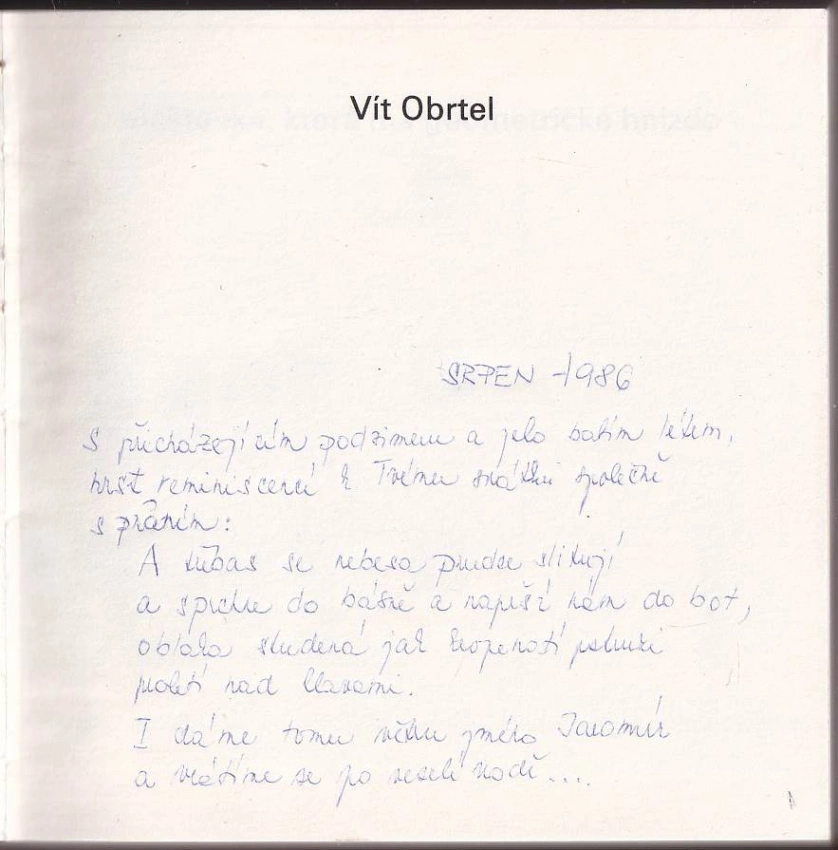 Vít Obrtel
SRPEN 1986
S přicházejícím podzimem a jeho babím létem,
hrst reminiscencí k Tvému svátku společně
s přáním:
A třebas se nebesa prudce slitují
a sprchne do básně a naprší nám do bot,
oblaka studená jak kropenatí pstruzi
proletí nad hlavami.
I dáme tomu věku jméno Jaromír
a vrátíme se po veselé vodě....